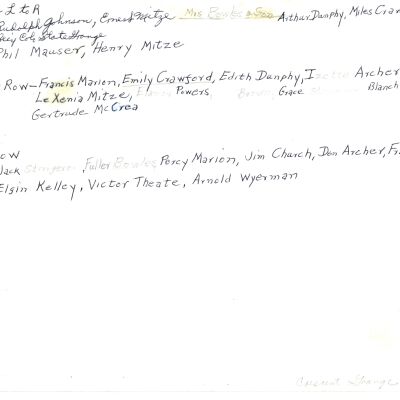 L to R
Rudolph Johnson, Ernest Mitze Mrs Bowles & Son Arthur Dunphy, Miles Craw
State Grange
Phil Mauser, Henry Mitze
Row - Francis Marion, Emily Crawford, Edith Dunphy, I Archer
LeXenia Mitze, Powers, Grace Blanch
Gertrude McCrea
ow
Jack Fuller Bowles Percy Marion, Jim Church, Don Archer, Fr
Elgin Kelley, Victor Theate, Arnold Wyerman
Crescent Grange